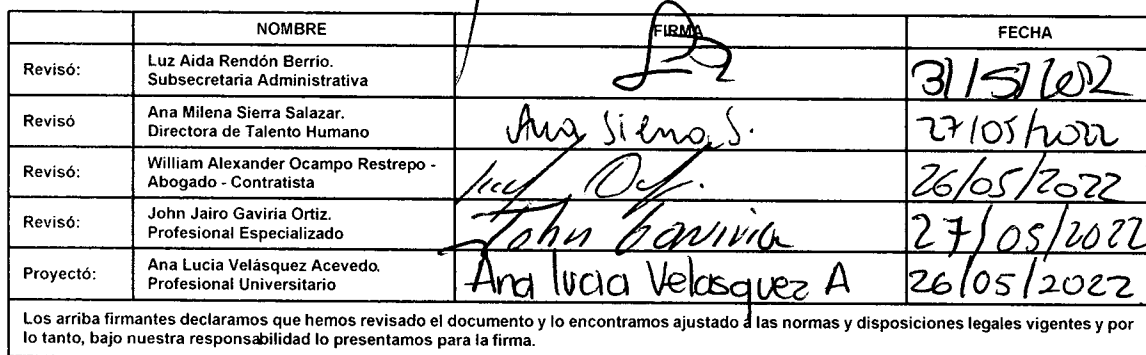 NOMBRE FIRMA FECHA
Revisó: Luz Aida Rendón Berrio.
Subsecretaria Administrativa
31/5/2022
Revisó Ana Milena Sierra Salazar.
Directora de Talento Humano
Ana Sierra S.
27/05/2022
Revisó: William Alexander Ocampo Restrepo -
Abogado - Contratista
26/05/2022
Revisó: John Jairo Gaviria Ortiz.
Profesional Especializado
John Gaviria
27/05/2022
Proyectó: Ana Lucia Velásquez Acevedo.
Profesional Universitario
Ana lucia Velasquez A
26/05/2022
Los arriba firmantes declaramos que hemos revisado el documento y lo encontramos ajustado a las normas y disposiciones legales vigentes y por
lo tanto, bajo nuestra responsabilidad lo presentamos para la firma.